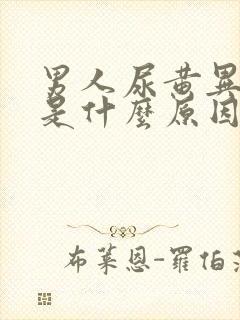 男人尿黄異
是什麼原因
布莱恩-羅伯